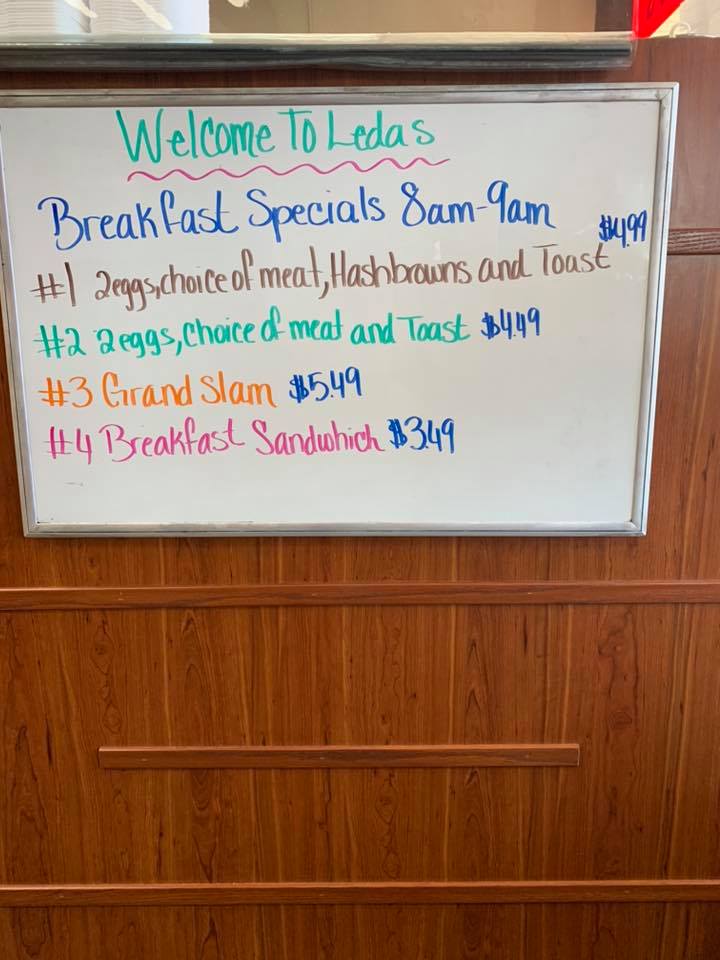 Welcome To Ledas
Breakfast Specials 8am-9am
$4.99
#1 2eggs,choice of meat,Hashbrowns and Toast
#2 2eggs,Choice of meat and Toast $4.49
#3 Grand Slam $5.49
#4 Breakfast Sandwhich $3.49